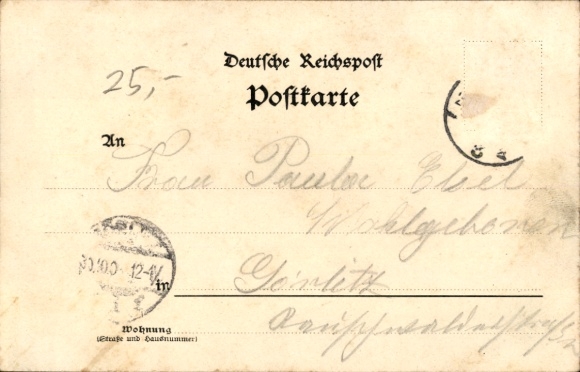 Deutsche Reichspost
Postkarte
25,-
An
Frau Paula Ebel
Wohlgeboren
30.10.0 12-1
in Görlitz
Rauschwalderstraße
Wohnung
(Straße und Hausnummer)